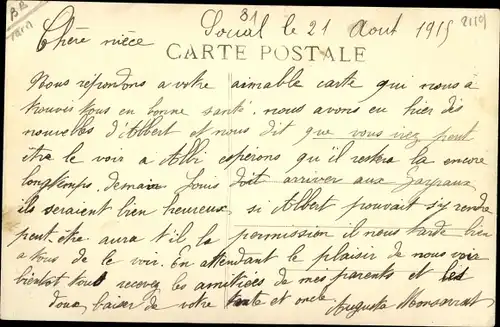 BB
Tarn
31
21159
Soual le 21 Aout 1915
Chère nièce
CARTE POSTALE
Nous répondons a votre aimable carte qui nous a
trouvés tous en bonne santé. nous avons eu hier dès
nouvelles d'Albert et nous dit que vous irez peut
être le voir a Albi espérons qu'il restera la encore
longtemps. demain Louis doit arriver aux Gayraux
ils seraient bien heureux si Albert pouvait s'y rendre
peut-être aura t'il la permission il nous tarde bien
a tous de le voir. En attendant le plaisir de nous voir
bientot tous recevez les amitiées de mes parents et les
doux baiser de votre tante et oncle Augusta Monsarrat